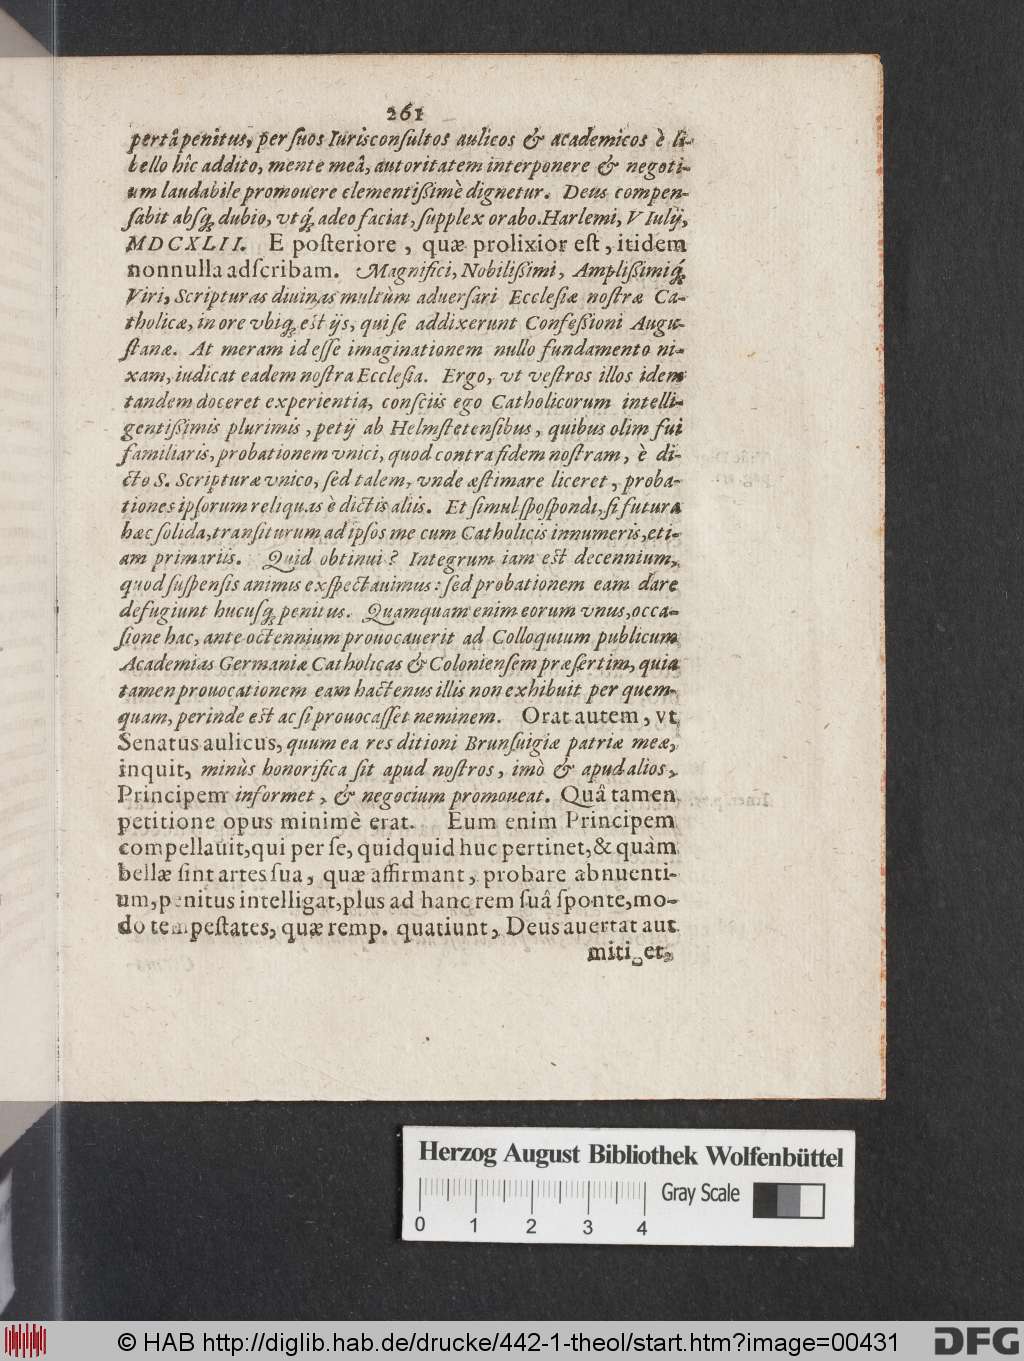 261
pertâ penitus, per ſuos Iurisconſultos aulicos & academicos è li-
bello hîc addito, mente meâ, autoritatem interponere & negoti-
um laudabile promouere clementißimè dignetur. Deus compen-
ſabit abſq́; dubio, vtq́; adeo faciat, ſupplex orabo. Harlemi, V Iulij,
MDCXLII. E poſteriore, quæ prolixior eſt, itidem
nonnulla adſcribam. Magnifici, Nobilißimi, Amplißimiq́;
Viri, Scripturas diuinas multùm aduerſari Eccleſiæ noſtræ Ca-
tholicæ, in ore vbiq; eſt ijs, qui ſe addixerunt Confeßioni Augu-
ſtanæ. At meram id eſſe imaginationem nullo fundamento ni-
xam, iudicat eadem noſtra Eccleſia. Ergo, vt veſtros illos idem
tandem doceret experientia, conſciis ego Catholicorum intelli-
gentißimis plurimis, petij ab Helmſtetenſibus, quibus olim fui
familiaris, probationem vnici, quod contra fidem noſtram, è di-
cto S. Scripturæ vnico, ſed talem, vnde æſtimare liceret, proba-
tiones ipſorum reliquas è dictis aliis. Et ſimul ſpoſpondi, ſi futura
hæc ſolida, tranſiturum ad ipſos me cum Catholicis innumeris, eti-
am primariis. Quid obtinui? Integrum iam eſt decennium,
quod ſuſpenſis animis exſpectauimus: ſed probationem eam dare
defugiunt hucuſq; penitus. Quamquam enim eorum vnus, occa-
ſione hac, ante octennium prouocauerit ad Colloquium publicum
Academias Germaniæ Catholicas & Colonienſem præſertim, quia
tamen prouocationem eam hactenus illis non exhibuit per quem-
quam, perinde eſt ac ſi prouocaſſet neminem. Orat autem, vt
Senatus aulicus, quum ea res ditioni Brunſuigiæ patriæ meæ,
inquit, minùs honorifica ſit apud noſtros, imò & apud alios,
Principem informet, & negocium promoueat. Quâ tamen
petitione opus minimè erat. Eum enim Principem
compellauit, qui per ſe, quidquid huc pertinet, & quàm
bellæ ſint artes ſua, quæ affirmant, probare abnuenti-
um, penitus intelligat, plus ad hanc rem ſuâ ſponte, mo-
do tempeſtates, quæ remp. quatiunt, Deus auertat aut
miti et,
Herzog August Bibliothek Wolfenbüttel
Gray Scale
0 1 2 3 4
© HAB http://diglib.hab.de/drucke/442-1-theol/start.htm?image=00431
DFG